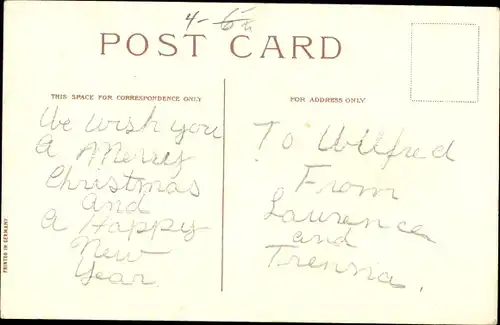 4-
POST CARD
THIS SPACE FOR CORRESPONDENCE ONLY
FOR ADDRESS ONLY.
We wish you
A Merry
Christmas
And
A Happy
New
Year.
To Wilfred
From
Laurence
and
PRINTED IN GERMANY